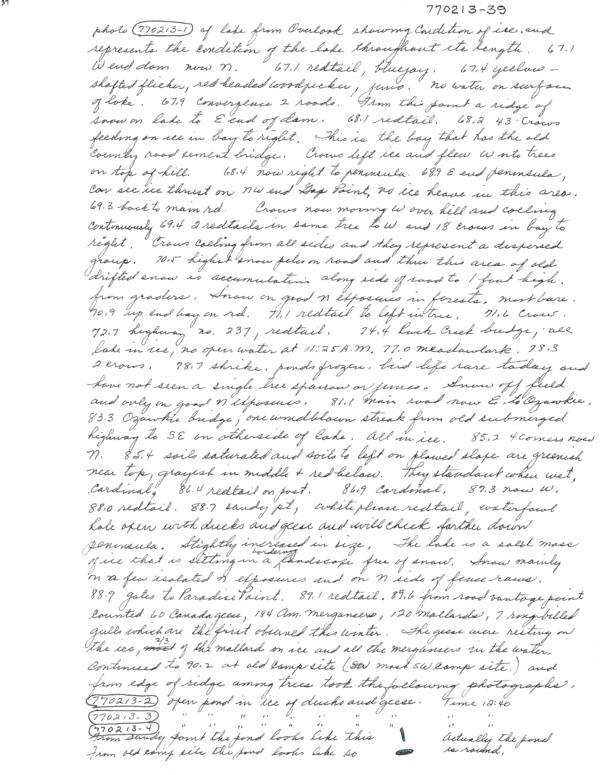 39
770213-39
photo 770213-1 of lake from Overlook showing Condition of ice. and
represents the condition of the lake throughout its length. 67.1
W end dam now N. 67.1 redtail, bluejay. 67.4 yellow-
shafted flicker, red headed woodpecker, junco. No water on surface
of lake. 67.9 Convergence 2 roads. From this point a ridge of
snow on lake to E end of dam. 68.1 redtail. 68.2 43 Crows
feeding on ice in bay to right. This is the bay that has the old
County road cement bridge. Crows left ice and flew W into trees
on top of hill. 68.4 now right to peninsula. 68.9 E end peninsula,
Can see ice thrust on NW end Point, no ice heave in this area.
69.3 back to main rd. Crows now moving W over hill and calling
continuously 69.4 2 redtails in same tree to W and 18 crows in bay to
right. Crows calling from all sides and they represent a dispersed
group. 70.5 highest snow piles on road and thru this area of old
drifted snow is accumulation along side of road to 1 foot high,
from graders. Snow on good N exposures in forests, most bare.
70.9 up end bay on rd. 71.1 redtail to left in tree. 71.6 Crow.
72.7 highway no. 237, redtail. 74.4 Rock Creek bridge, all
lake in ice, no open water at 11:25 A.M. 77.0 meadowlark. 78.3
2 crows. 78.7 shrike. ponds frozen. bird life rare today and
have not seen a single tree sparrow or junco. Snow off field
and only in good N exposures. 81.1 main road now E. to Ozawkie.
83.3 Ozawkie bridge, one windblown streak from old submerged
highway to SE on otherside of lake. All in ice. 85.2 4 corners now
N. 85.4 soils saturated and soils to left on plowed slope are greenish
near top, grayish in middle & red below. They standout when wet,
Cardinal, 86.4 redtail on post. 86.9 Cardinal. 87.3 now W.
88.0 redtail. 88.7 sandy pt, white phase redtail, waterfowl
hole open with ducks and geese and will check farther down
peninsula. Slightly increased in size. The lake is a solid mass
of ice that is sitting in a bordering landscape free of snow. Snow mainly
in a few isolated N exposures and on N side of fence rows.
88.9 gates to Paradise Point. 89.1 redtail. 89.6 from road vantage point
Counted 60 Canada geese, 184 Am. Mergansers, 120 mallards, 7 ring billed
gulls which are the first observed this winter. The geese were resting on
the ice, 2/3 of the mallard on ice and all the mergansers in the water.
Continued to 90.2 at old camp site (most SW camp site.) and
from edge of ridge among trees took the following photographs.
770213-2 open pond in ice of ducks and geese. Time 12:40
770213-3 " " " " " " " " " "
770213-4 " " " " " " " " " "
From sandy point the pond looks like this Actually the pond
From old camp site the pond looks like so is round.